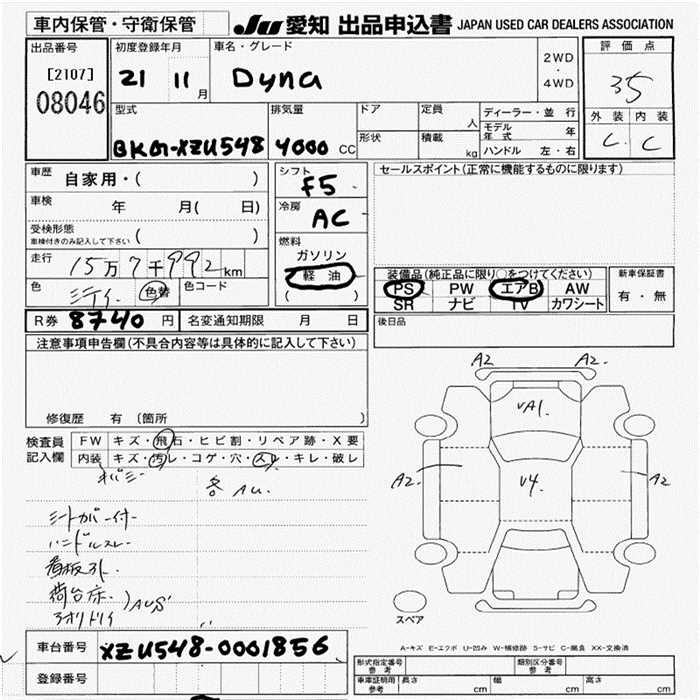 車内保管・守衛保管
JU 愛知 出品申込書 JAPAN USED CAR DEALERS ASSOCIATION
出品番号
[2107]
08046
初度登録年月
21 11月
車名・グレード
Dyna
2WD
・
4WD
評価点
35
外装 内装
C C
型式
BKG-XZU548
排気量
4000 CC
ドア
形状
定員
人
積載
kg
ディーラー・並行
モデル年式 年
ハンドル 左・右
車歴 自家用・( )
車検 年 月( 日)
受検形態
車検付きのみ記入して下さい ( )
走行 15万7千992km
色 色替 色コード
シフト
F5
冷房
AC
燃料
ガソリン
軽油
( )
セールスポイント(正常に機能するものに限ります)
装備品(純正品に限り○をつけてください)
PS PW エアB AW
SR ナビ TV カワシート
新車保証書
有・無
R券 8740円 名変通知期限 月 日
後日品
注意事項申告欄(不具合内容等は具体的に記入して下さい)
修復歴 有 〔箇所
検査員記入欄
FW キズ・飛石・ヒビ割・リペア跡・X要
内装 キズ・汚レ・コゲ・穴・スレ・キレ・破レ
各AU.
シートカバー付
ハンドルスレ
看板跡.
荷台床.
アオリドリイ
A2 A2.
VA1.
A2. V4. A2
スペア
A-キズ E-エクボ U-凹み W-補修跡 S-サビ C-腐食 XX-交換済
車台番号 XZU548-0001856
登録番号
形式指定番号
参考
類別区分番号
参考
車庫証明用
参考
長さ cm 幅 cm 高さ cm